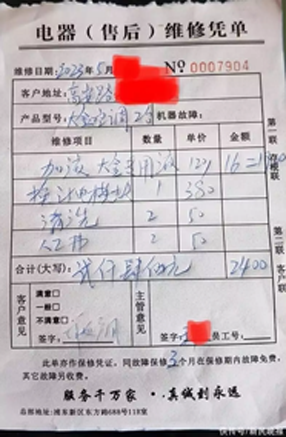 电器（售后）维修凭单
维修日期：2023年5月 № 0007904
客户地址：
产品型号：大金空调2台 机器故障：
维修项目 数量 单价 金额
加液 大金专用液 129 16=
1 380
清洗 2 50
人工费 2 50
合计(大写)：贰仟肆佰元 2400
客户意见
满意□
一般□
不满意□
签字：
主管意见
签字： 员工号：
第一联 存根联
第二联 客户联
此单亦作保修凭证，同故障保修3个月在保修期内故障免费，
其它故障另收费。
服务千万家·真诚到永远
总部地址：浦东新区东方路688号11B室